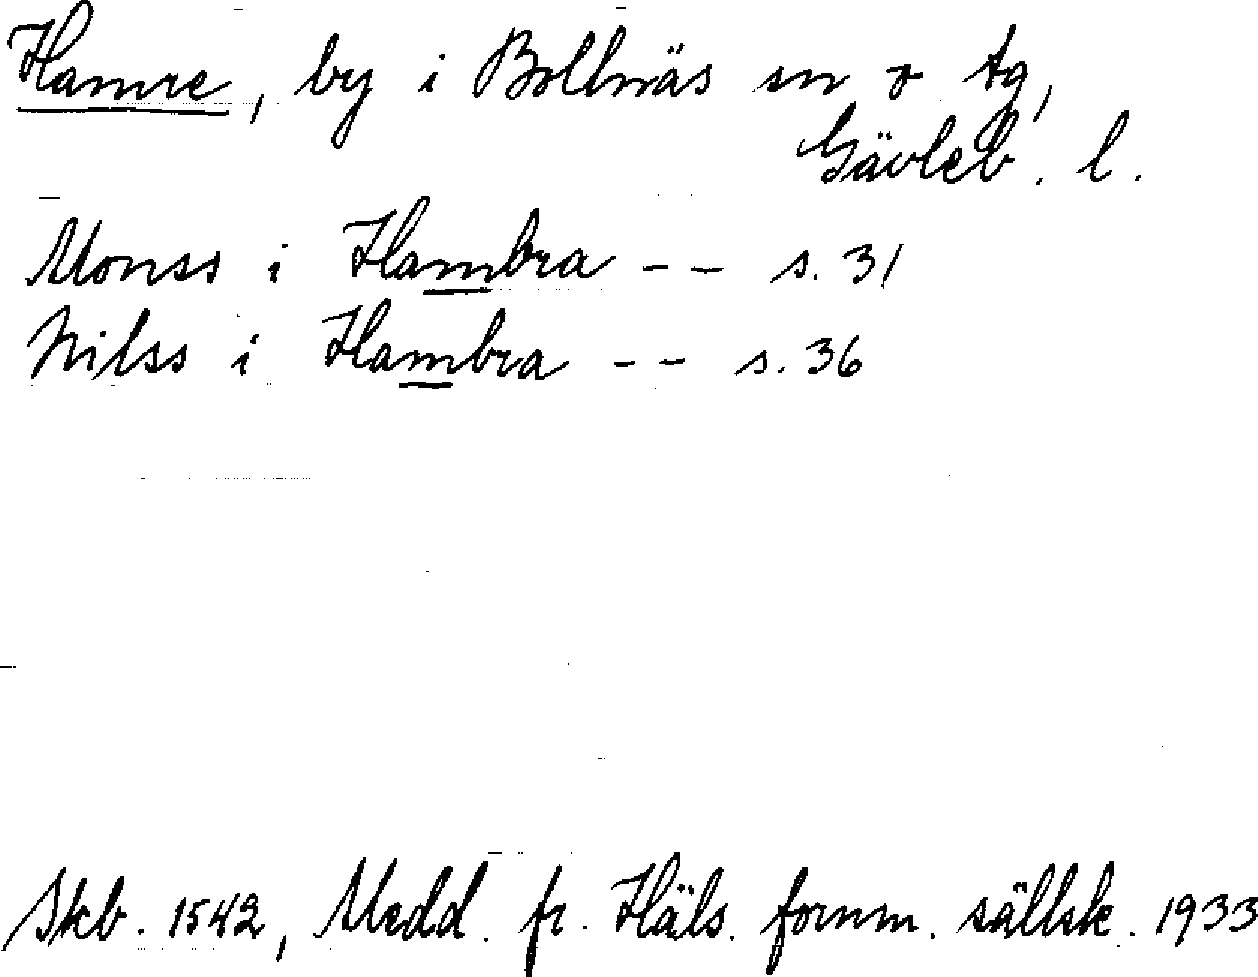 Hamre, by i Bollnäs sn o tg,
Gävleb. l.
Monss i Hambra -- s. 31
Nilss i Hambra -- s. 36
Skb. 1542, Medd. fr. Häls. fornm. sällsk. 1933